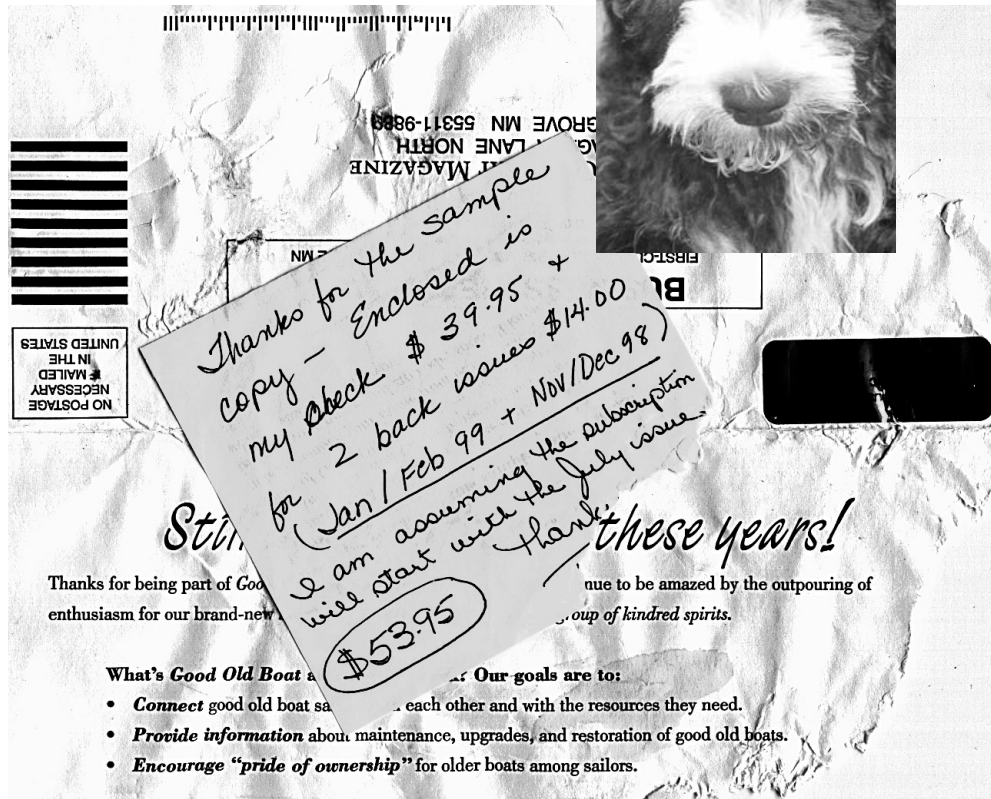 GROVE MN 55311-9889
LANE NORTH
MAGAZINE
MN
FIRST-CL
NO POSTAGE
NECESSARY
IF MAILED
IN THE
UNITED STATES
Thanks for the sample
copy – Enclosed is
my check $39.95 +
for 2 back issues $14.00
(Jan/Feb 99 + Nov/Dec 98)
I am assuming the subscription
will start with the July issue.
Thank
$53.95
these years!
Thanks for being part of Goo nue to be amazed by the outpouring of
enthusiasm for our brand-new oup of kindred spirits.
What's Good Old Boat a Our goals are to:
• Connect good old boat sa each other and with the resources they need.
• Provide information about maintenance, upgrades, and restoration of good old boats.
• Encourage "pride of ownership" for older boats among sailors.